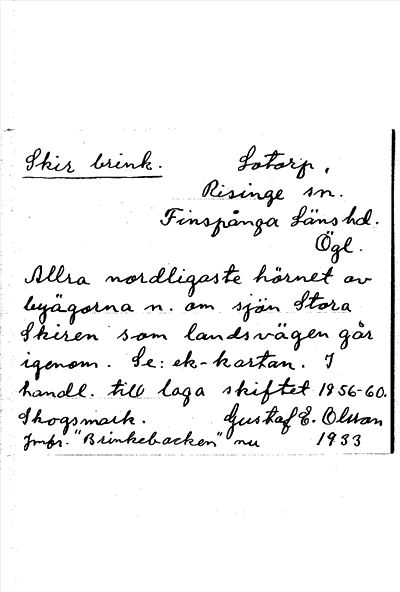 Skir brink. Sotorp,
Risinge sn.
Finspånga Läns hd.
Ögl.
Allra nordligaste hörnet av
byägorna n. om sjön Stora
Skiren som landsvägen går
igenom. Se: ek-kartan. I
handl. till laga skiftet 1856-60.
Skogsmark. Gustaf E. Olsson
Jmfr. "Brinkebacken" nu 1933